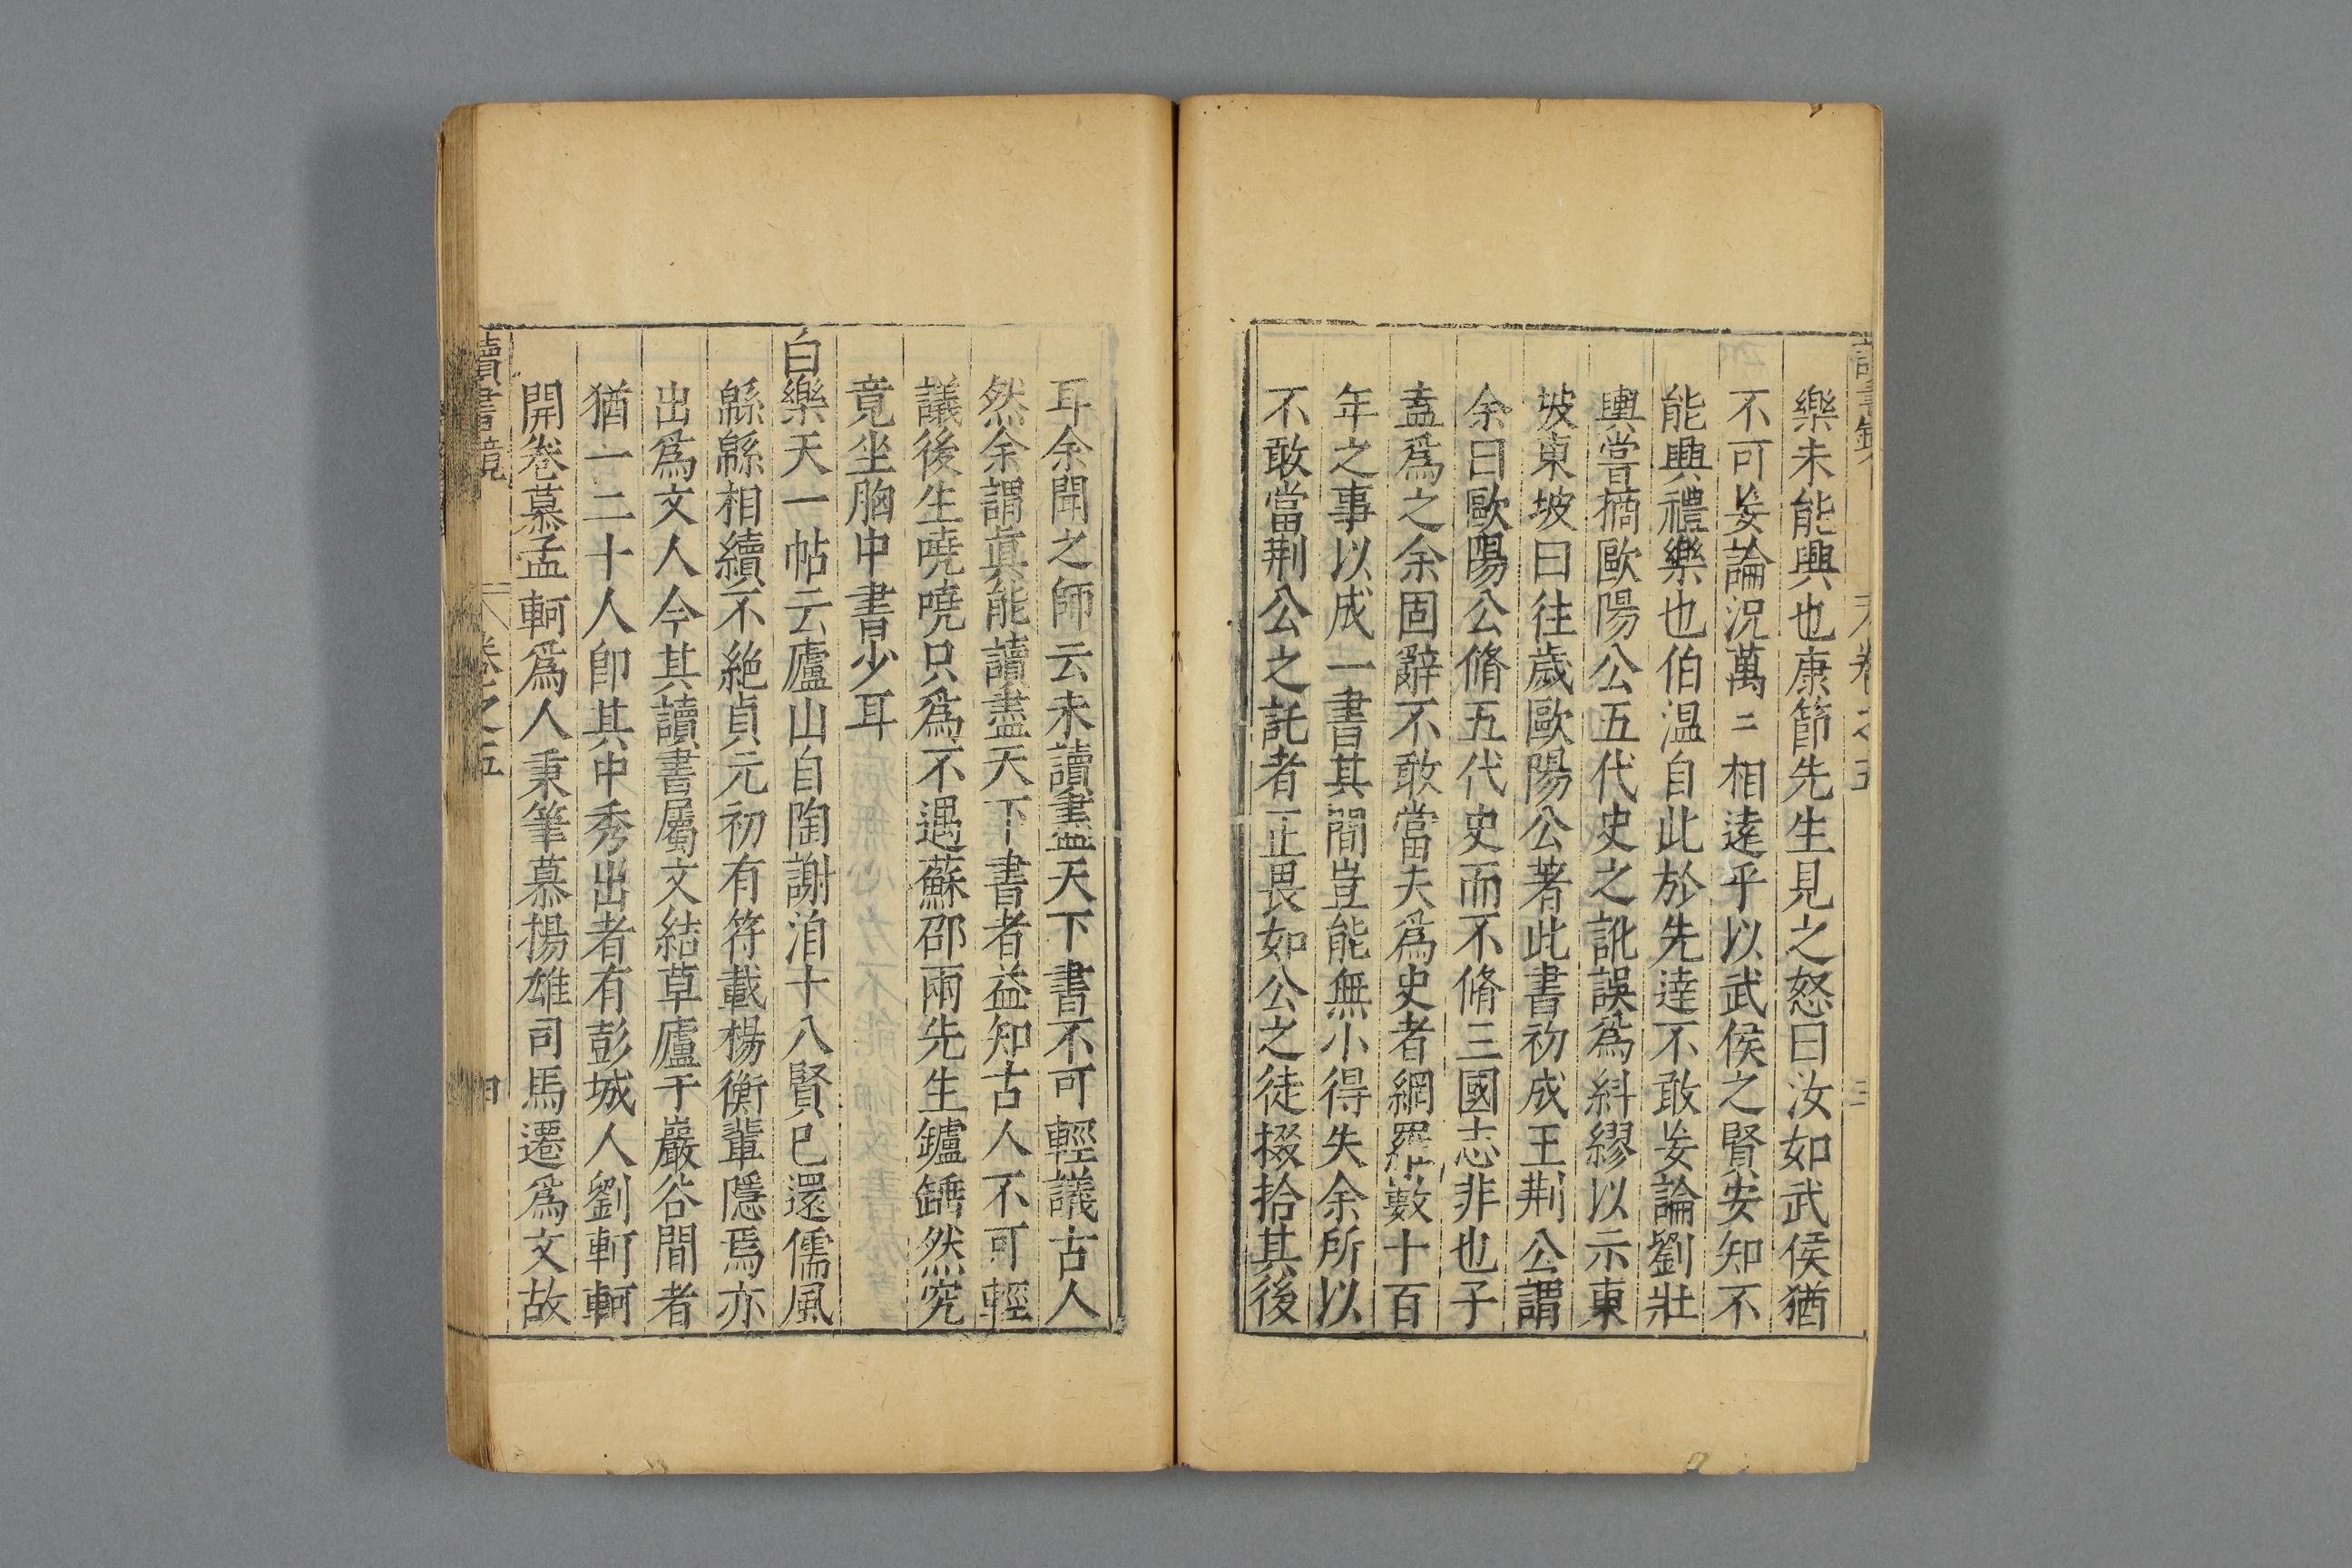 讀書鏡 卷之五 三
樂未能興也康節先生見之怒曰汝如武侯猶
不可妄論況萬〻相遠乎以武侯之賢安知不
能興禮樂也伯溫自此於先達不敢妄論劉壯
輿嘗摘歐陽公五代史之訛誤爲糾繆以示東
坡東坡曰往歲歐陽公著此書初成王荆公謂
余曰歐陽公脩五代史而不脩三國志非也子
盍爲之余固辭不敢當夫爲史者網羅數十百
年之事以成一書其間豈能無小得失余所以
不敢當荆公之託者正畏如公之徒掇拾其後
耳余聞之師云未讀盡天下書不可輕議古人
然余謂眞能讀盡天下書者益知古人不可輕
議後生嘵嘵只爲不遇蘇邵兩先生鑪錘然究
竟坐胸中書少耳
白樂天一帖云廬山自陶謝洎十八賢已還儒風
緜緜相續不絶貞元初有符載楊衡輩隱焉亦
出爲文人今其讀書屬文結草廬于巖谷間者
猶一二十人卽其中秀出者有彭城人劉軻軻
開卷慕孟軻爲人秉筆慕揚雄司馬遷爲文故
讀書鏡 卷之五 四